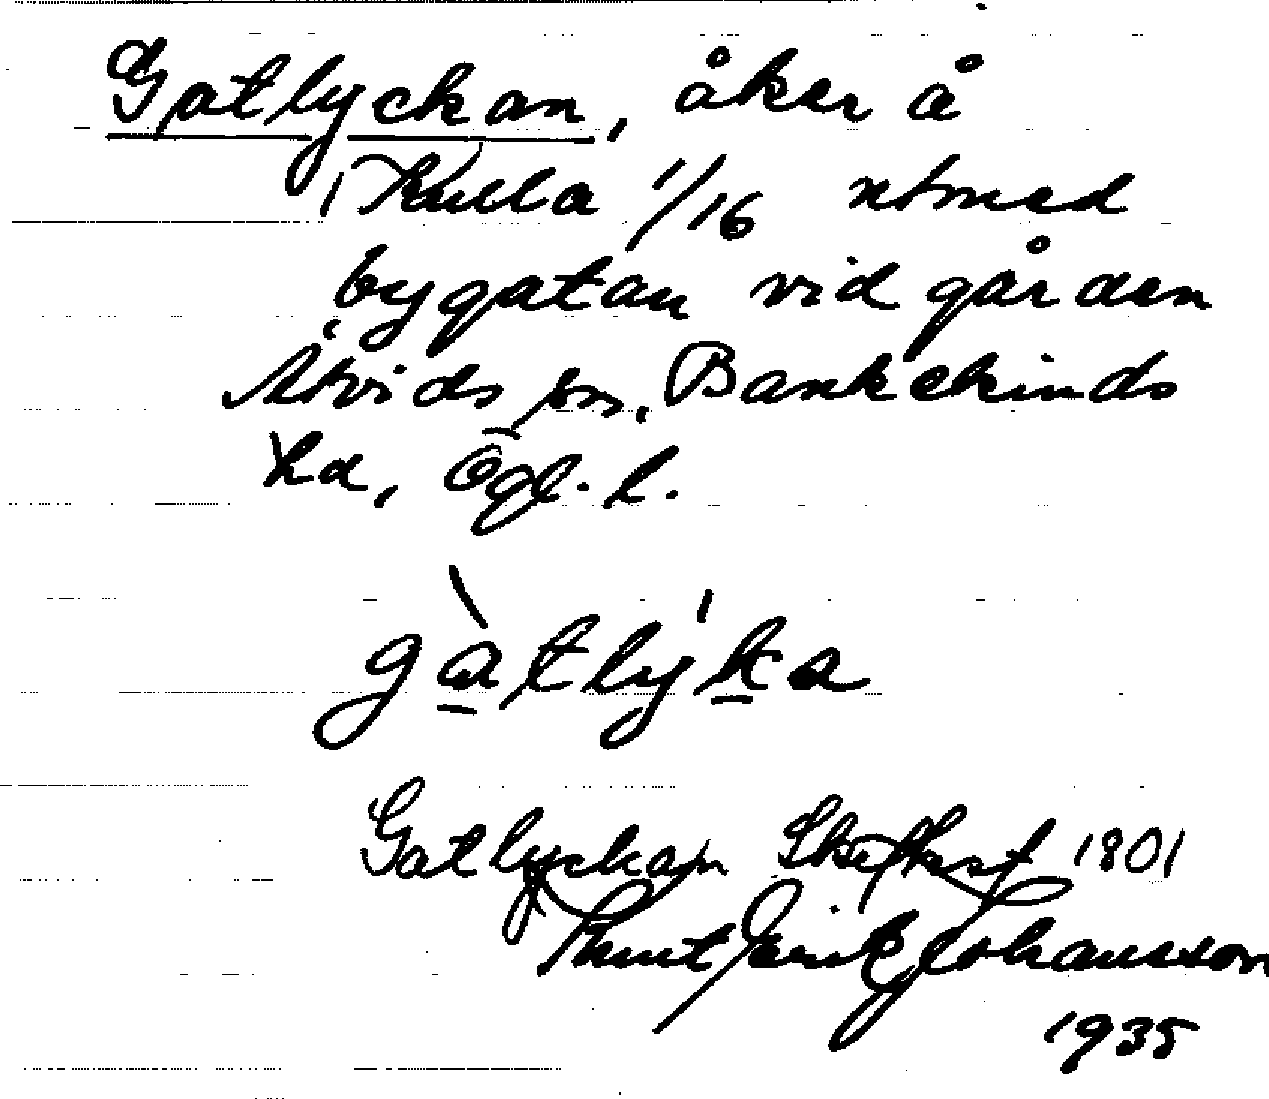 Gatlyckan, åker å
Kulla 1/16 utmed
bygatan vid gården
Åtvids sn, Bankekinds
hd, Ögl. l.
gàtlýka
Gatlyckan Skifteskf 1801
Knut Erik Johansson
1935